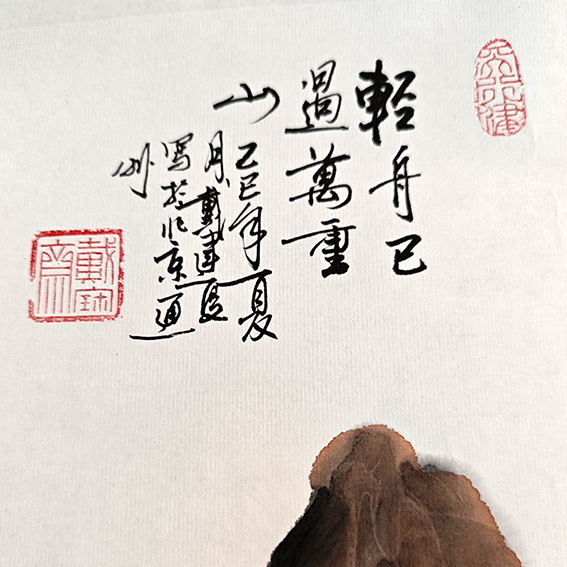 天行健
輕舟已
過萬重
山
乙巳年夏
月戴建
寫於北京通
州